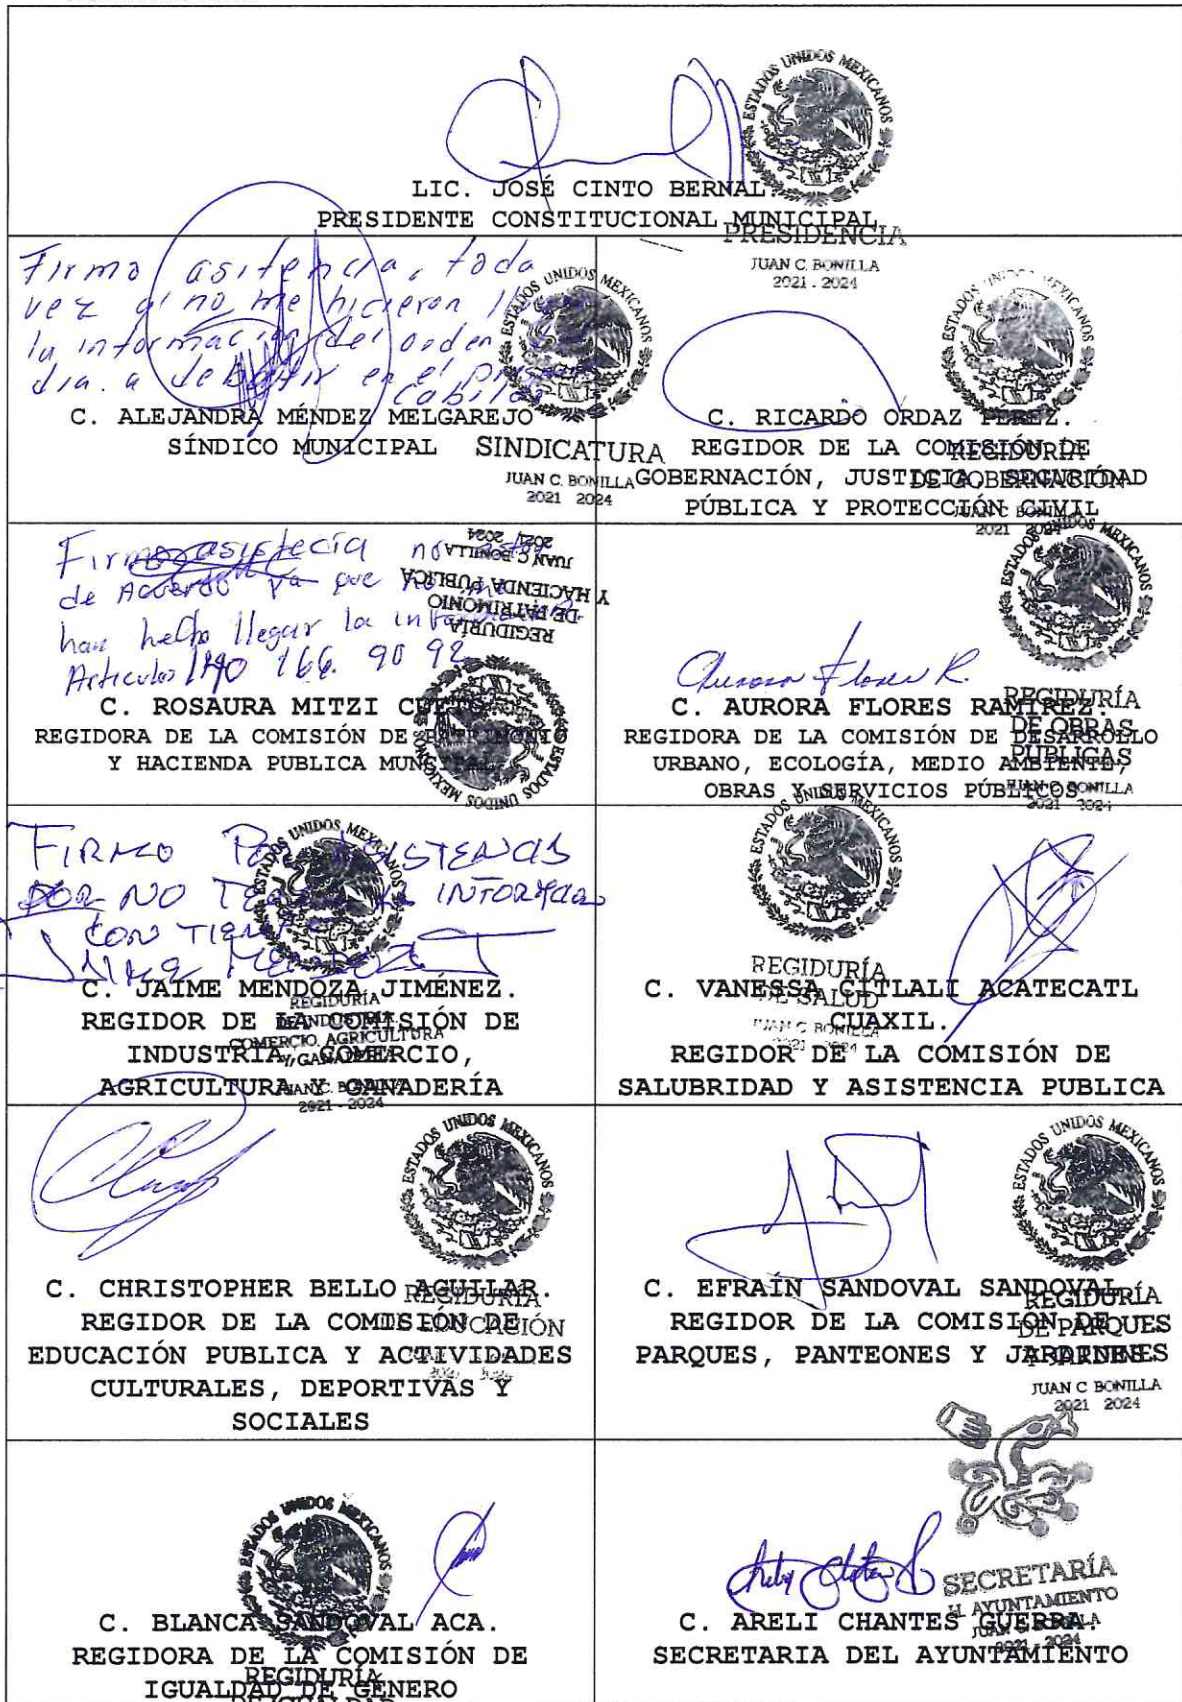 ESTADOS UNIDOS MEXICANOS
LIC. JOSÉ CINTO BERNAL.
PRESIDENTE CONSTITUCIONAL MUNICIPAL
PRESIDENCIA
JUAN C. BONILLA
2021 - 2024
Firmo asitencia, toda
vez q' no me hicieron
la información del orden
dia. a debatir en el
Cabildo
ESTADOS UNIDOS MEXICANOS
C. ALEJANDRA MÉNDEZ MELGAREJO
SÍNDICO MUNICIPAL
SINDICATURA
JUAN C. BONILLA
2021 2024
C. RICARDO ORDAZ PEREZ.
REGIDOR DE LA COMISIÓN DE
GOBERNACIÓN, JUSTICIA, SEGURIDAD
PÚBLICA Y PROTECCIÓN CIVIL
REGIDURÍA
DE GOBERNACIÓN
JUAN C BONILLA
2021 2024
Firmo asistecia no
de Acuerdo ya que
han hecho llegar la
Articulos 140 166. 90 92
REGIDURÍA
DE PATRIMONIO
Y HACIENDA PÚBLICA
JUAN C. BONILLA
2021 2024
C. ROSAURA MITZI
REGIDORA DE LA COMISIÓN DE PATRIMONIO
Y HACIENDA PUBLICA MUNICIPAL
ESTADOS UNIDOS MEXICANOS
ESTADOS UNIDOS MEXICANOS
Aurora Flores R.
C. AURORA FLORES RAMIREZ.
REGIDORA DE LA COMISIÓN DE DESARROLLO
URBANO, ECOLOGÍA, MEDIO AMBIENTE,
OBRAS Y SERVICIOS PÚBLICOS
REGIDURÍA
DE OBRAS
PÚBLICAS
JUAN C. BONILLA
2021 2024
FIRMO POR ASISTENCIA
POR NO TENER LA
CON TIEMPO
JAIME MENDOZA J
ESTADOS UNIDOS MEXICANOS
C. JAIME MENDOZA JIMÉNEZ.
REGIDOR DE LA COMISIÓN DE
INDUSTRIA, COMERCIO,
AGRICULTURA Y GANADERÍA
REGIDURÍA
DE INDUSTRIA,
COMERCIO, AGRICULTURA
Y GANADERÍA
JUAN C. BONILLA
2021 - 2024
ESTADOS UNIDOS MEXICANOS
REGIDURÍA
DE SALUD
JUAN C BONILLA
2021 2024
C. VANESSA CITLALI ACATECATL
CUAXIL.
REGIDOR DE LA COMISIÓN DE
SALUBRIDAD Y ASISTENCIA PUBLICA
ESTADOS UNIDOS MEXICANOS
C. CHRISTOPHER BELLO AGUILAR.
REGIDOR DE LA COMISIÓN DE
EDUCACIÓN PUBLICA Y ACTIVIDADES
CULTURALES, DEPORTIVAS Y
SOCIALES
REGIDURÍA
DE EDUCACIÓN
ESTADOS UNIDOS MEXICANOS
C. EFRAÍN SANDOVAL SANDOVAL
REGIDOR DE LA COMISIÓN DE
PARQUES, PANTEONES Y JARDINES.
REGIDURÍA
DE PARQUES
Y JARDINES
JUAN C BONILLA
2021 2024
ESTADOS UNIDOS MEXICANOS
C. BLANCA SANDOVAL ACA.
REGIDORA DE LA COMISIÓN DE
IGUALDAD DE GÉNERO
REGIDURÍA
DE IGUALDAD
SECRETARÍA
H. AYUNTAMIENTO
JUAN C. BONILLA
2021 - 2024
C. ARELI CHANTES GUERRA.
SECRETARIA DEL AYUNTAMIENTO